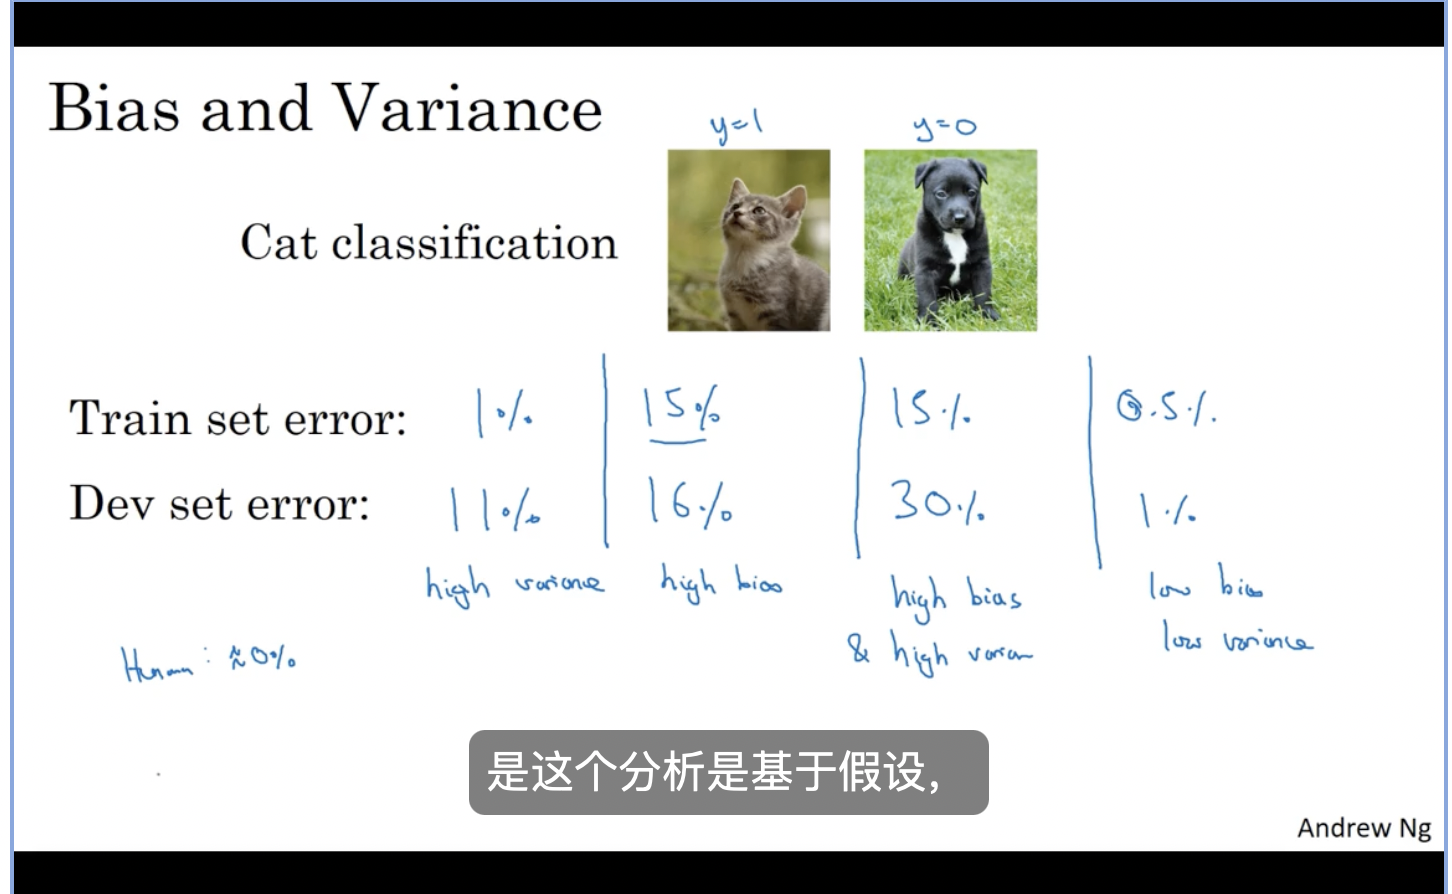 Bias and Variance
y=1 y=0
Cat classification
Train set error: 1% 15% 15% 0.5%
Dev set error: 11% 16% 30% 1%
high variance high bias high bias low bias
& high varian low variance
Human: ≈0%
是这个分析是基于假设,
Andrew Ng